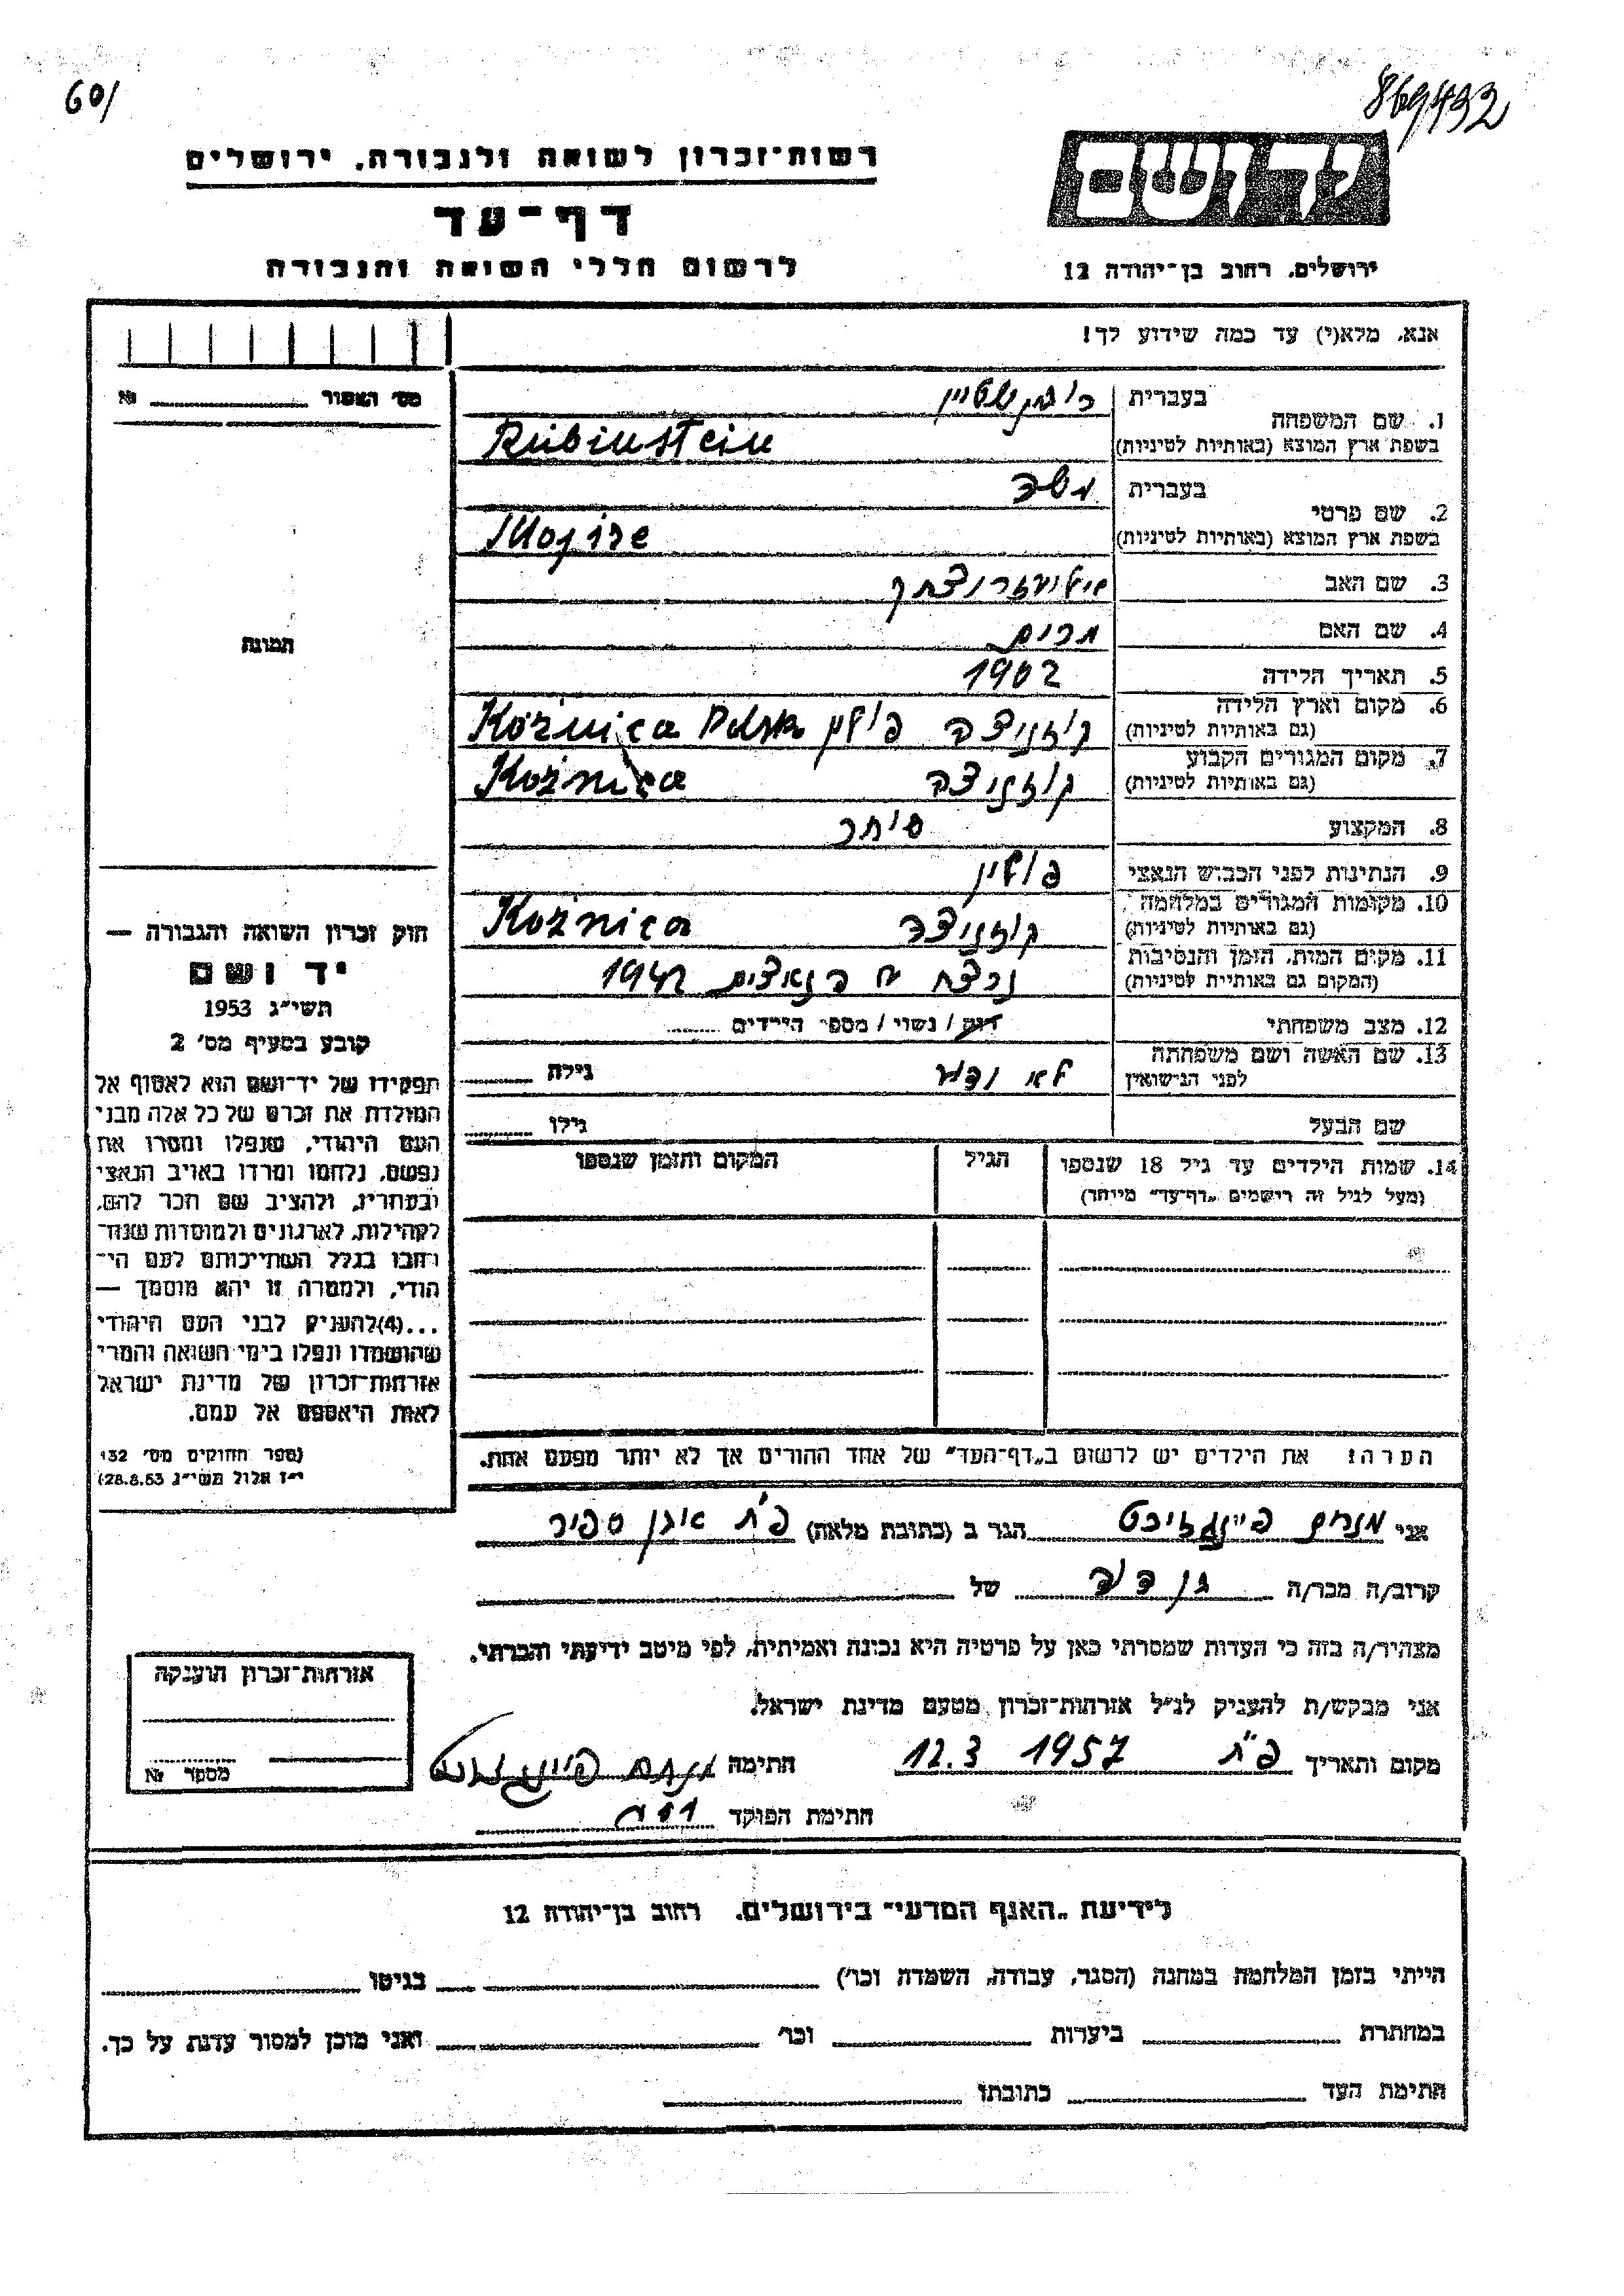 60/
869492
רשות-זכרון לשואה ולגבורה, ירושלים
דף-עד
לרשום חללי השואה והגבורה
יד ושם
ירושלים, רחוב בן-יהודה 12
אנא, מלא(י) עד כמה שידוע לך!
מס' האסור № ________
תמונה
חוק זכרון השואה והגבורה —
יד ושם
תשי"ג 1953
קובע בסעיף מס' 2
תפקידו של יד-ושם הוא לאסוף אל
המולדת את זכרם של כל אלה מבני
העם היהודי, שנפלו ומסרו את
נפשם, נלחמו ומרדו באויב הנאצי
ובעוזריו, ולהציב שם וזכר להם,
לקהילות, לארגונים ולמוסדות שנח-
רבו בגלל השתייכותם לעם הי-
הודי, ולמטרה זו יהא מוסמך —
...(4)להעניק לבני העם היהודי
שהושמדו ונפלו בימי השואה והמרי
אזרחות-זכרון של מדינת ישראל
לאות היאספם אל עמם.
(ספר החוקים מס' 132
י"ז אלול תשי"ג 28.8.53)
1. שם המשפחה בעברית רובינשטיין
בשפת ארץ המוצא (באותיות לטיניות) Rubinstein
2. שם פרטי בעברית משה
בשפת ארץ המוצא (באותיות לטיניות)
3. שם האב
4. שם האם מרים
5. תאריך הלידה 1902
6. מקום וארץ הלידה (גם באותיות לטיניות) קוזניצה פולין Koźnica Polska
7. מקום המגורים הקבוע (גם באותיות לטיניות) קוזניצה Koźnica
8. המקצוע סוחר
9. הנתינות לפני הכבוש הנאצי פולין
10. מקומות המגורים במלחמה (גם באותיות לטיניות) קוזניצה Koźnica
11. מקום המות, הזמן והנסיבות (המקום גם באותיות לטיניות) נרצח ע הנאצים 1942
12. מצב משפחתי רווק / נשוי / מספר הילדים ........
13. שם האשה ושם משפחתה לפני הנישואין לא ודוע גילה ........
שם הבעל גילו ........
14. שמות הילדים עד גיל 18 שנספו (מעל לגיל זה רישמים "דף-עד" מייחד) הגיל המקום והזמן שנספו
הערה: את הילדים יש לרשום ב"דף-העד" של אחד ההורים אך לא יותר מפעם אחת.
אני מנחם פיינגזיכט הגר ב (כתובת מלאה) פ"ת אבן ספיר
קרוב/ה מכר/ה בן דוד של
מצהיר/ה בזה כי העדות שמסרתי כאן על פרטיה היא נכונה ואמיתית, לפי מיטב ידיעתי והכרתי.
אני מבקש/ת להעניק לנ"ל אזרחות-זכרון מטעם מדינת ישראל.
מקום ותאריך פ"ת 12.3 1957 חתימה מנחם פיינגזיכט
חתימת הפוקד
אזרחות-זכרון הוענקה
מספר №
לידיעת "האגף המדעי" בירושלים, רחוב בן-יהודה 12
הייתי בזמן המלחמה במחנה (הסגר, עבודה, השמדה וכו') ________ בגיטו ________
במחתרת ________ ביערות ________ וכו' ________ ואני מוכן למסור עדות על כך.
חתימת העד ________ כתובתו ________